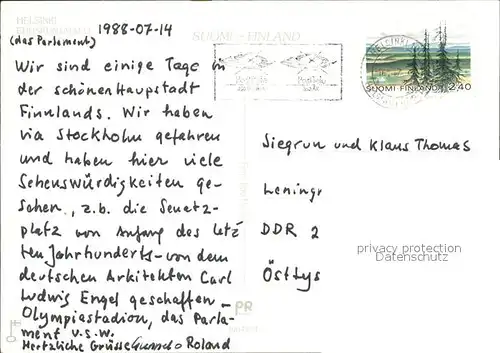 HELSINKI
1988-07-14
(das Parlament)
SUOMI - FINLAND
Wir sind einige Tage in
der schönen Haupstadt
Finnlands. Wir haben
via Stockholm gefahren
und haben hier viele
Sehenswürdigkeiten ge-
sehen, z.b. die Senatz-
platz von Anfang des letz-
ten Jahrhunderts - von dem
deutschen Arkitekten Carl
Ludwig Engel geschaffen -
Olympiastadion, das Parla-
ment u.s.w.
Hertzliche Grüsse & Roland
HELSINKI
SUOMI FINLAND 2,40
Siegrun und Klaus Thomas
Leningr
DDR 2
Östtys
privacy protection
Datenschutz
PR